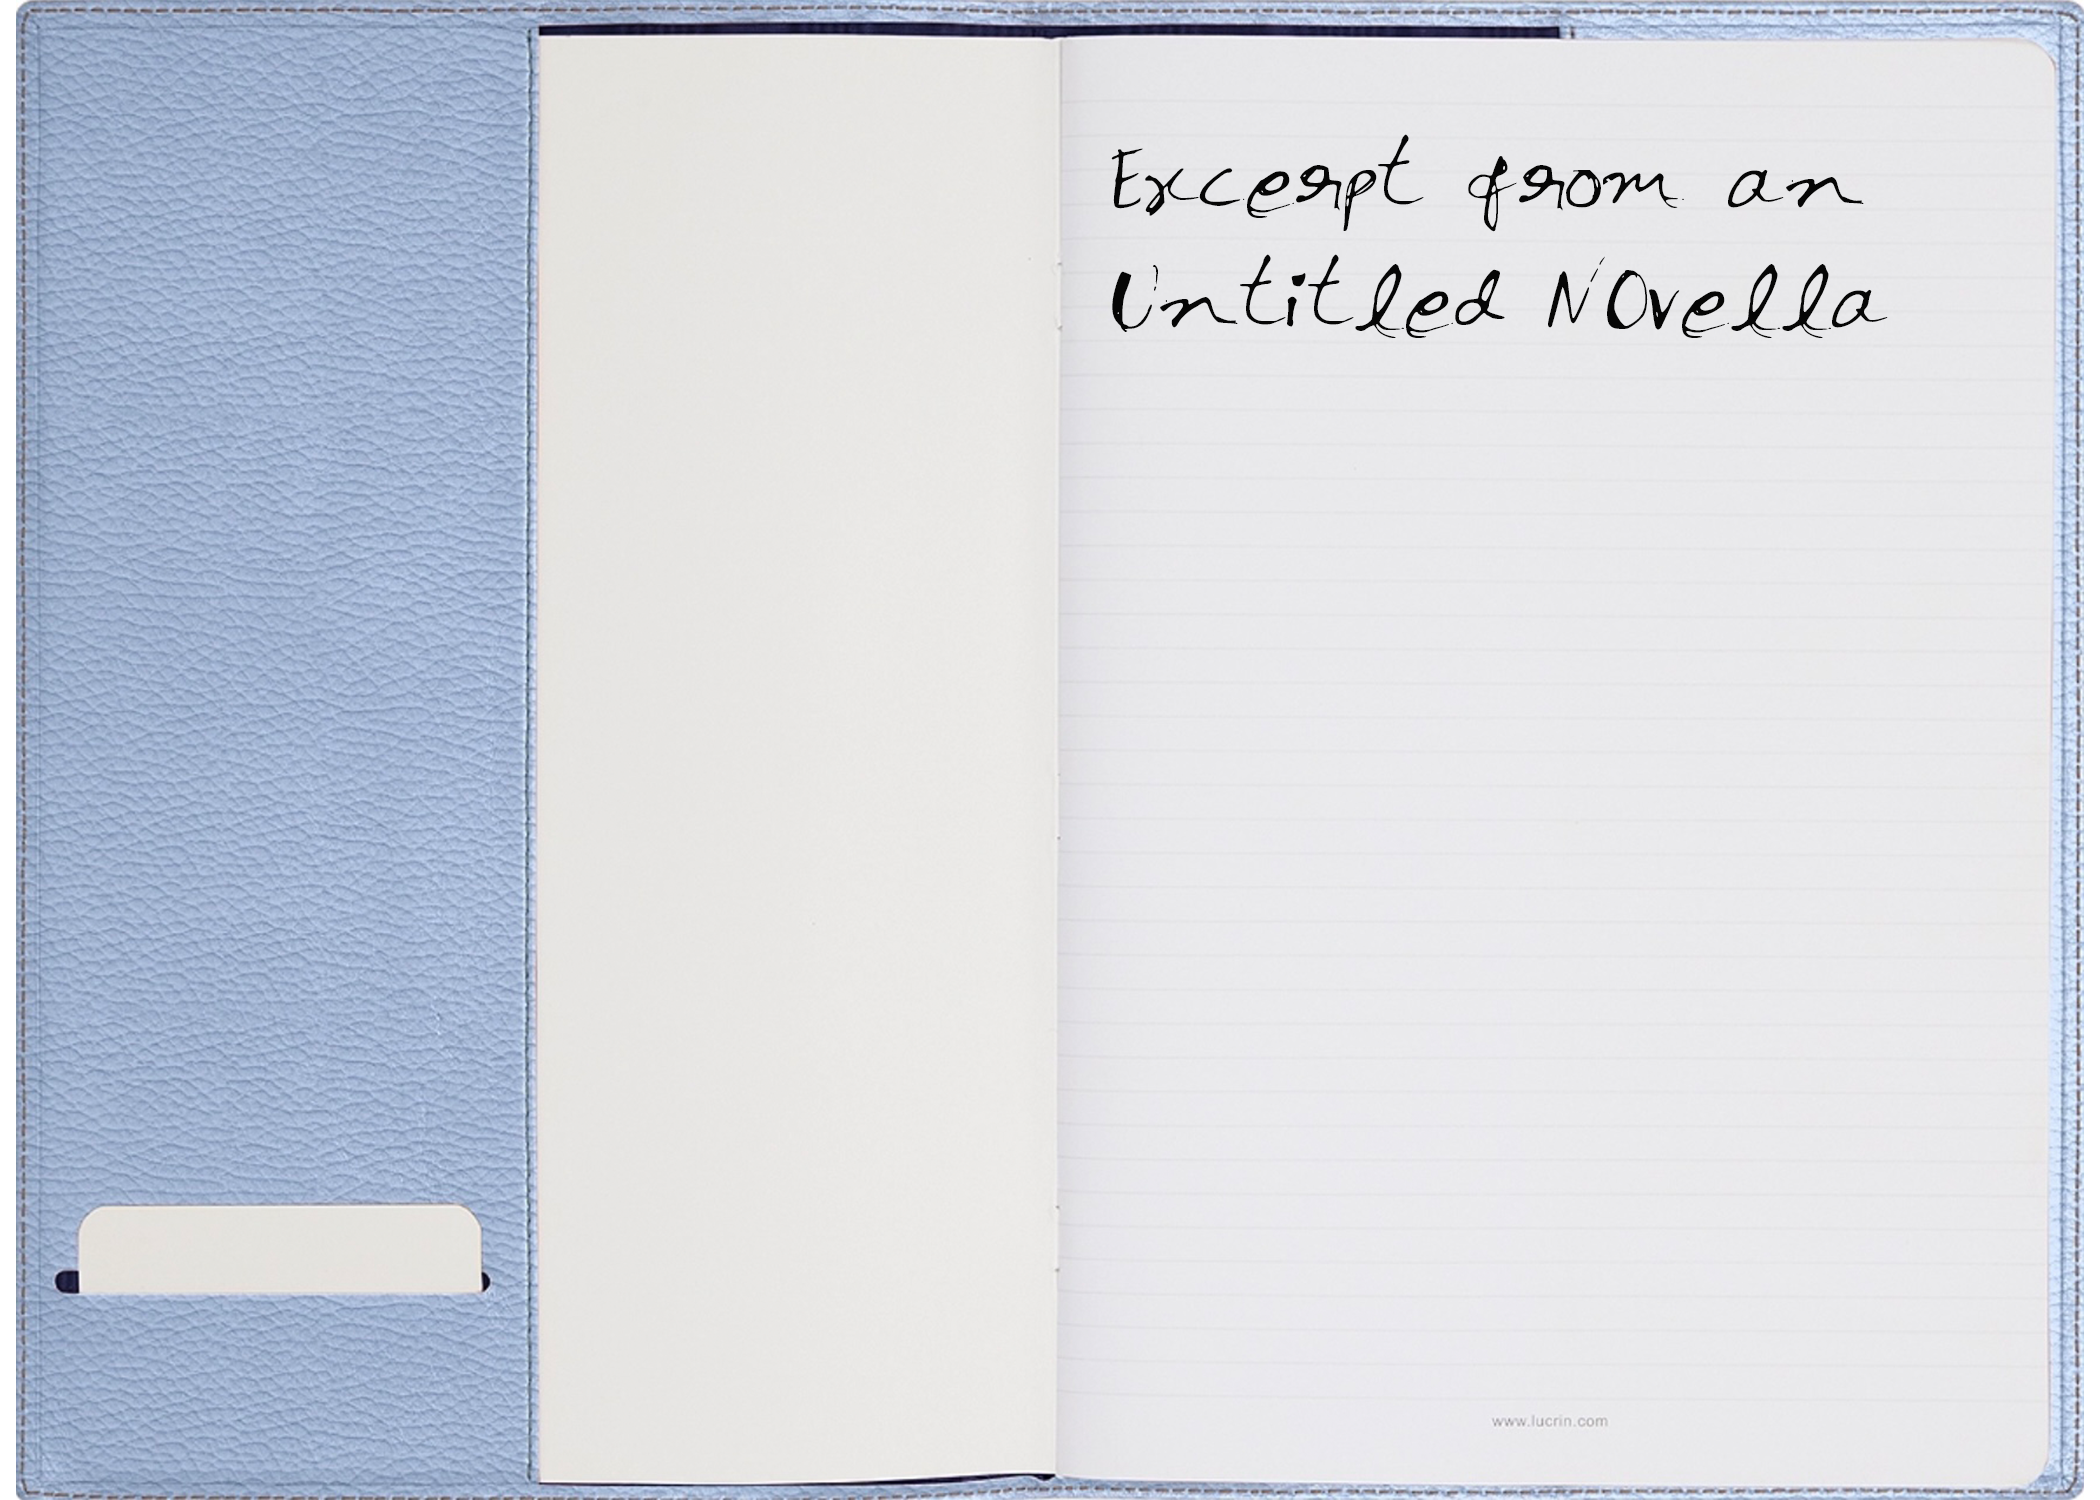 Excerpt from an
Untitled NOvella
www.lucrin.com